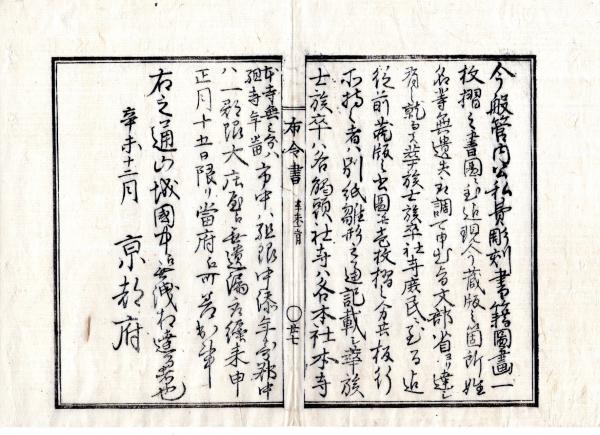 今般管内公私費彫刻書籍圖畫一
枚摺之書圖ニ至迄現今藏版之箇所姓
名等無遺失取調可申出旨文部省ヨリ達シ
有之就而ハ華族士族卒社寺庶民ニ至ル迄
從前藏版之書圖並壱枚摺之分共板行
所持之者ハ別紙雛形之通記載シ華族
士族卒ハ各觸頭社寺ハ各本社本寺
布令書
辛未十二月
〇廿七
本寺無之分ハ
組寺年當
市中ハ組限中添年寄郡中
ハ一郡限大庄屋ニ而無遺漏取纏来申
正月十五日限リ當府ヘ可差出事
右之通山城國中無洩相達者也
辛未十二月
京都府